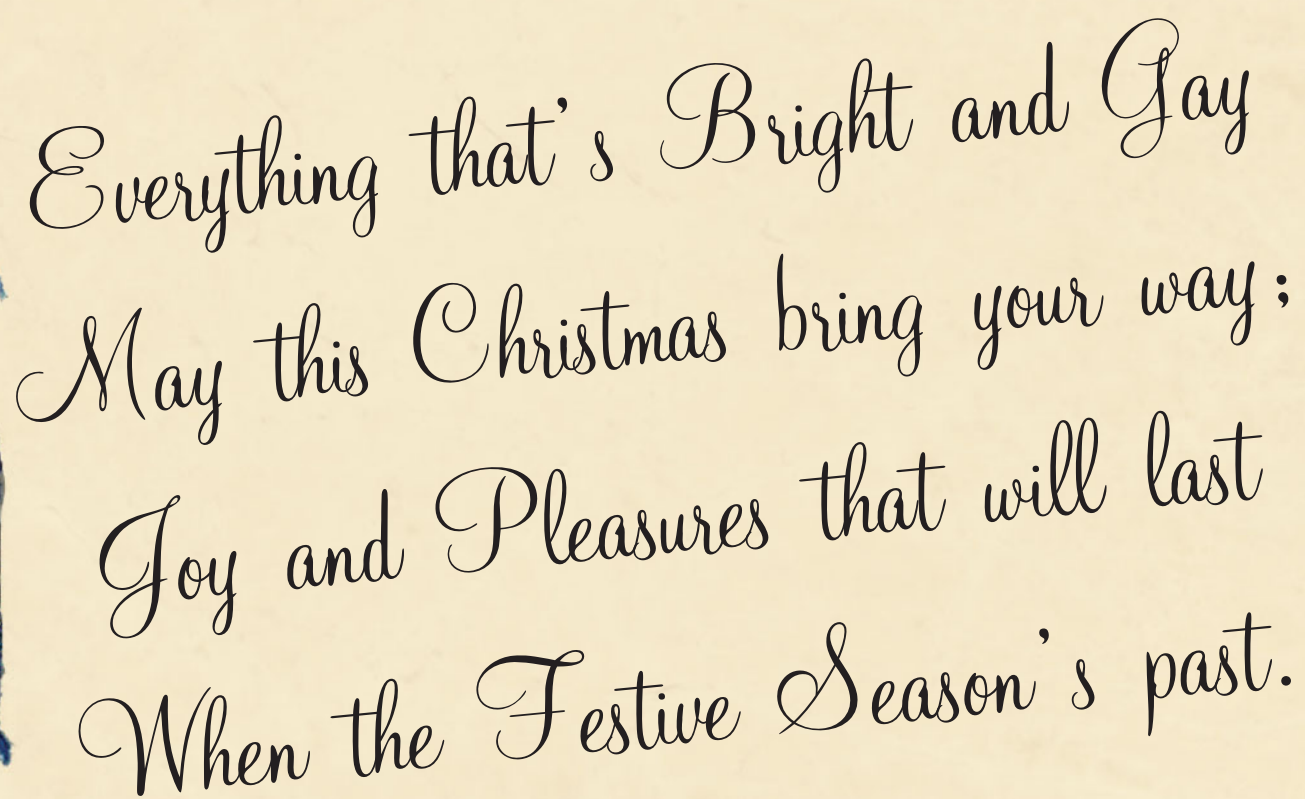 Everything that's Bright and Gay
May this Christmas bring your way;
Joy and Pleasures that will last
When the Festive Season's past.